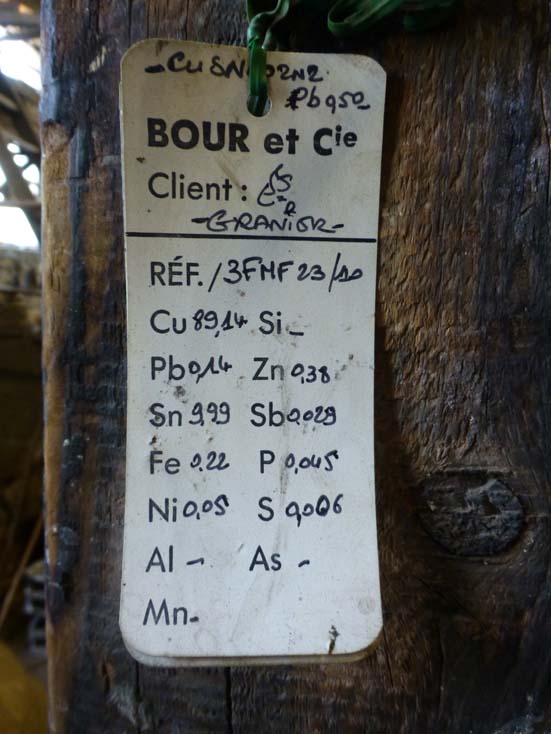 BOUR et Cie
Client : Ets
-GRANIER-
RÉF./3FMF 23/10
Cu 89,14 Si _
Pb 0,14 Zn 0,38
Sn 9,99 Sb 0,029
Fe 0,22 P 0,045
Ni 0,05 S 0,006
Al - As -
Mn-